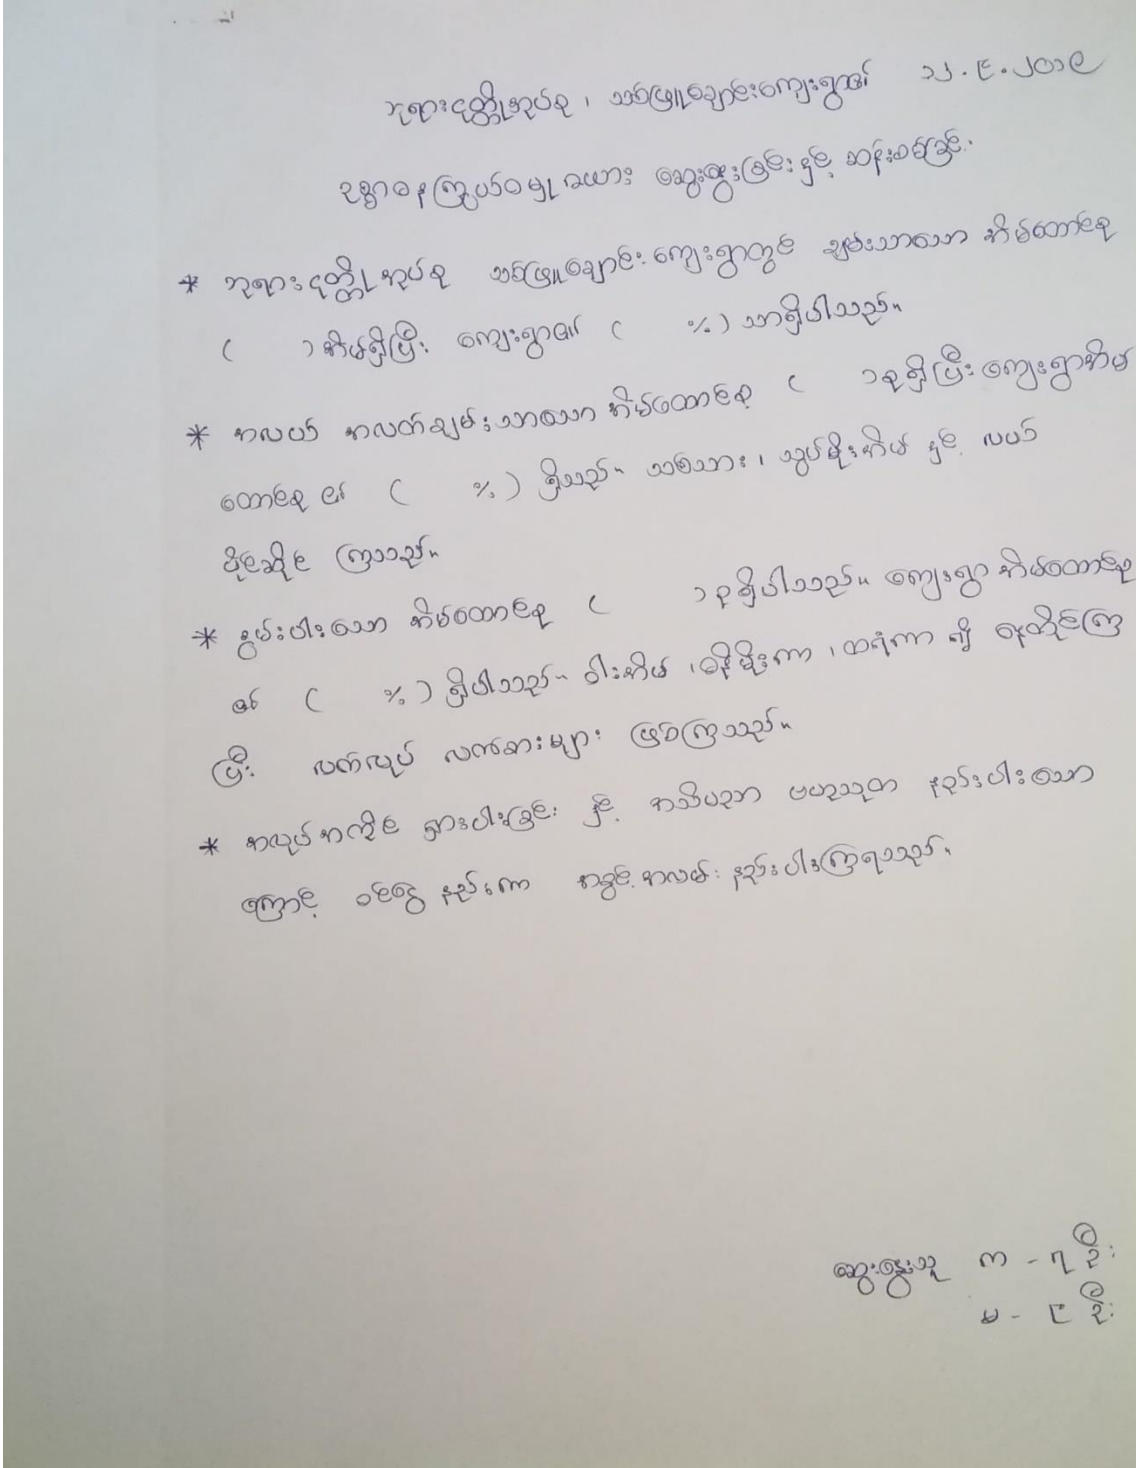 ဘုရားငုတ္တိုအုပ်စု ၊ သစ်ဖြူချောင်းကျေးရွာ၏ ၁၂.၉.၂၀၁၉
ဥစ္စာဓနကြွယ်ဝမှုအား ဆွေးနွေးခြင်းနှင့် ဆန်းစစ်ခြင်း
* ဘုရားငုတ္တိုအုပ်စု သစ်ဖြူချောင်းကျေးရွာတွင် ချမ်းသာသော အိမ်ထောင်စု
( ) အိမ်ရှိပြီး ကျေးရွာ၏ ( %) သာရှိပါသည်။
* အလယ် အလတ်ချမ်းသာသော အိမ်ထောင်စု ( ) စုရှိပြီး ကျေးရွာအိမ်
ထောင်စု ၏ ( %) ရှိသည်။ သစ်သား ၊ သွပ်မိုးအိမ် နှင့် လယ်
ပိုင်ဆိုင် ကြသည်။
* နွမ်းပါးသော အိမ်ထောင်စု ( ) စုရှိပါသည်။ ကျေးရွာ အိမ်ထောင်စု
၏ ( %) ရှိပါသည်။ ဝါးအိမ် ၊ ဓနိမိုးကာ ၊ ထရံကာ ၍ နေထိုင်ကြ
ပြီး လက်လုပ် လက်စားများ ဖြစ်ကြသည်။
* အလုပ်အကိုင် ရှားပါးခြင်း နှင့် အသိပညာ ဗဟုသုတ နည်းပါးသော
ကြောင့် ဝင်ငွေ နည်းကာ အခွင့်အလမ်း နည်းပါးကြရသည်။
ဆွေးနွေးသူ က - ၇ ဦး
မ - ၎ ဦး